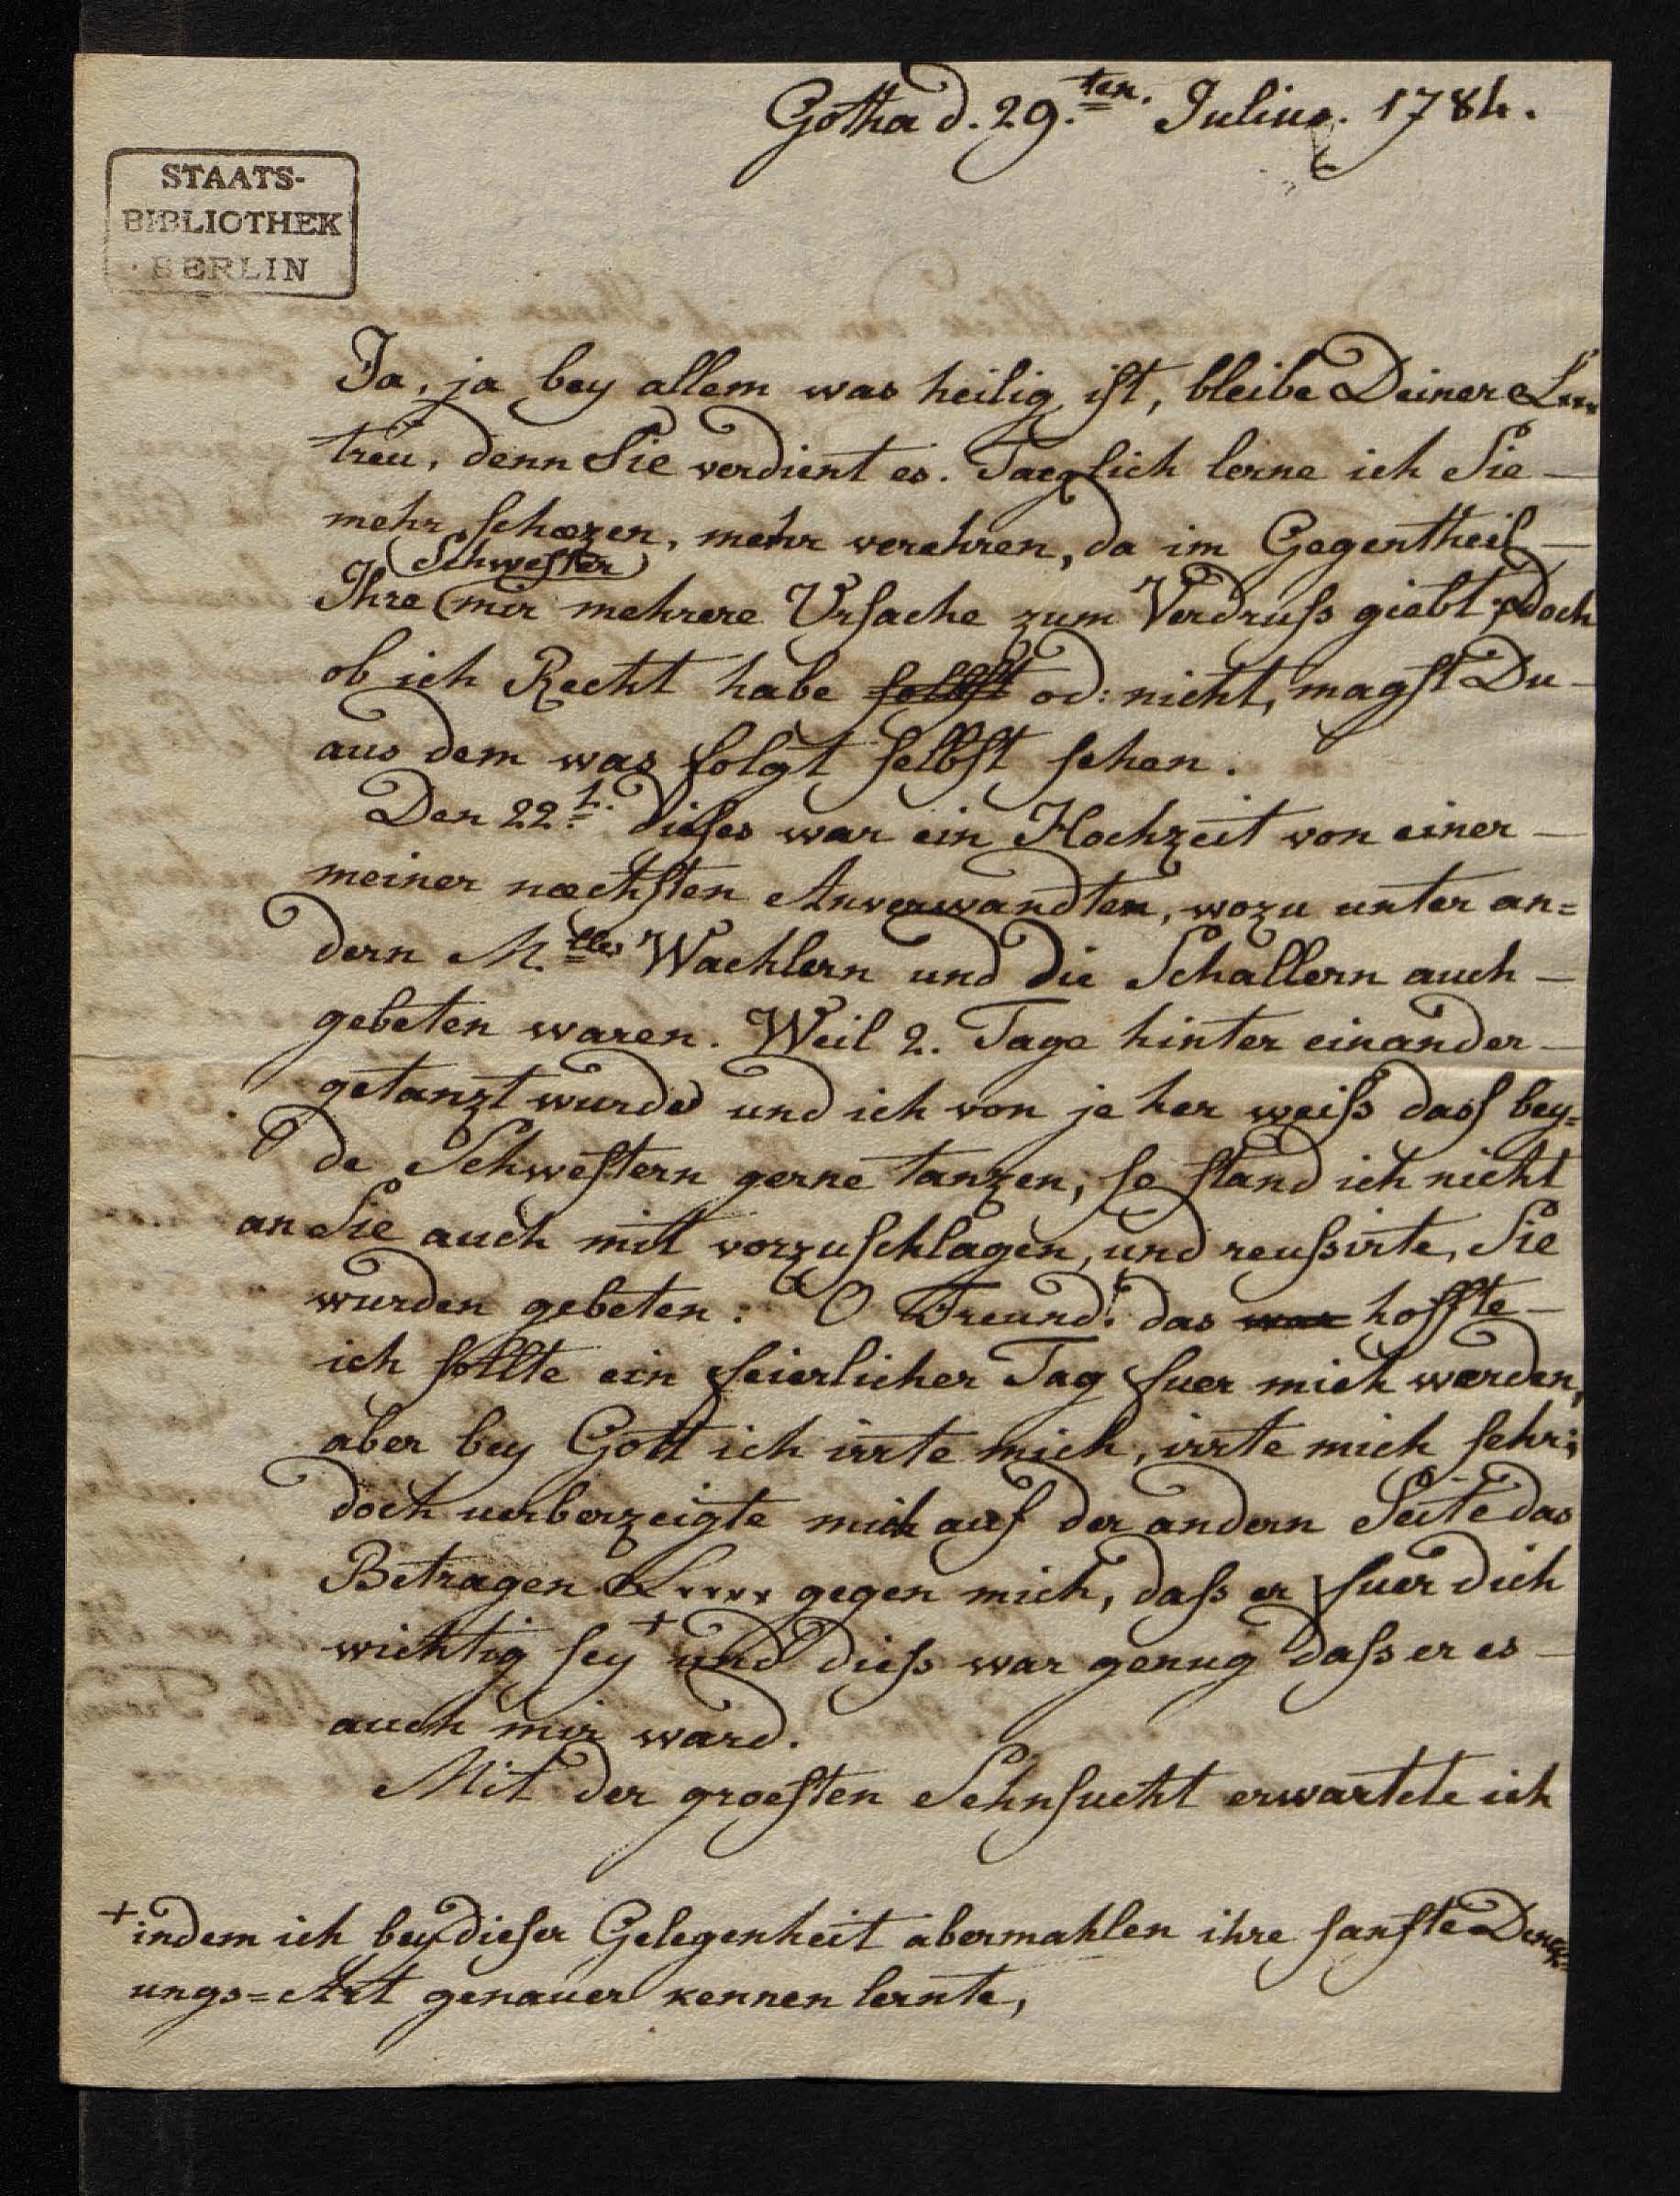 Gotha d. 29.ten. Julius. 1784.
STAATS-
BIBLIOTHEK
BERLIN
Ja, ja bey allem was heilig ist, bleibe Deiner L***
treu, denn Sie verdient es. Taeglich lerne ich Sie –
mehr schæzen, mehr verehren, da im Gegentheil –
Schwester
Ihre mir mehrere Ursache zum Verdruß giebt, Doch
ob ich Recht habe selbst od: nicht, magst Du –
aus dem was folgt selbst sehen.
Den 22.t. dieses war ein Hochzeit von einer –
meiner næchsten Anverwandten, wozu unter an=
dern M.lles Wachlern und die Schallern auch –
gebeten waren. Weil 2. Tage hinter einander –
getanzt wurde und ich von je her weiß dass bey=
de Schwestern gerne tanzen, so stand ich nicht
an Sie auch mit vorzuschlagen, und reussirte, Sie
wurden gebeten. O Freund! das war hoffte –
ich sollte ein feierlicher Tag fuer mich werden,
aber bey Gott ich irrte mich, irrte mich sehr;
doch ueberzeigte mich auf der andern Seite das
Betragen L**** gegen mich, daß er fuer dich
wichtig sey + und dieß war genug daß er es –
auch mir ward.
Mit der groesten Sehnsucht erwartete ich
+ indem ich bey dieser Gelegenheit abermahlen ihre sanfte Denk=
ungs=Art genauer kennen lernte,